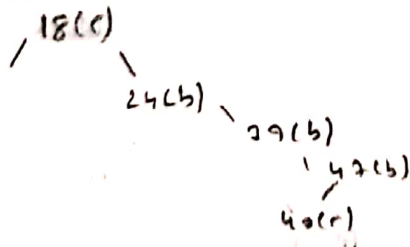 18(r)
24(b)
39(b)
47(b)
40(r)